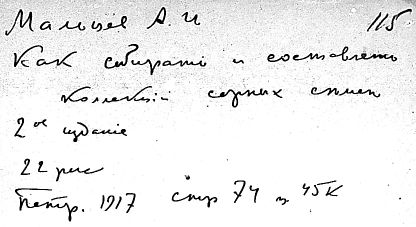 Мальцев А. И 115
Как собирать и составлять
коллекций сорных семен
2ое издание
22 рис
Петр. 1917 стр 74 ц 45к